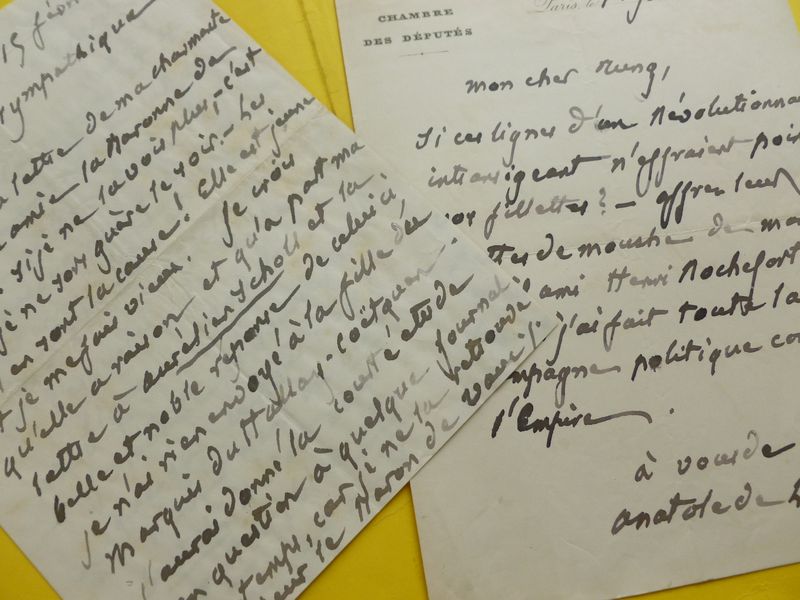 15 févr
sympathique
lettre de ma charmante
amie la Baronne de
si je ne la vois plus, c'est
je ne sors guère le soir. - Les
en sont la cause! Elle est jeune
et je me fais vieux. Je crois
qu'elle a raison et qu'à part ma
lettre à Aurélien Scholl et la
belle et noble réponse de celui-ci
je n'ai rien envoyé à la fille du
Marquis du Hallay-Coëtquen.
J'aurai donné la courte étude
en question à quelque journal
temps, car je ne la retrouve
le Baron de Vaux.
CHAMBRE
DES DÉPUTÉS
Paris, le
mon cher Rung,
Si ces lignes d'un Révolutionna
intransigeant n'effraient poin
vos fillettes? - offrez leur
ttes de mouche de mo
ami Henri Rochefort
j'ai fait toute la
mpagne politique co
l'Empire.
à vous de
Anatole de